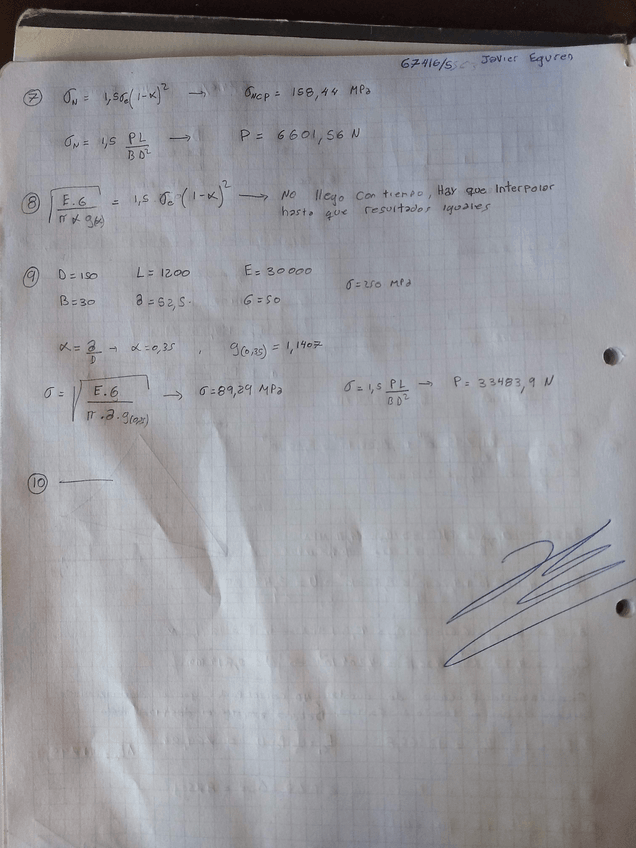 Javier Eguren
⑦ σN = 1,5σ0(1-α)² → σNCP = 158,44 MPa
σN = 1,5 PL/BD² → P = 6601,56 N
⑧ √(E.G/π α g(α)) = 1,5 σ0 (1-α)² → No llego con tiempo, Hay que Interpolar
hasta que resultados iguales
⑨ D=150 L=1200 E=30000 σ=250 MPa
B=30 a=52,5 G=50
α=a/D → α=0,35 , g(0,35)=1,1407
σ=√(E.G/π.a.g(0,35)) → σ=89,29 MPa σ=1,5 PL/BD² → P=33483,9 N
⑩